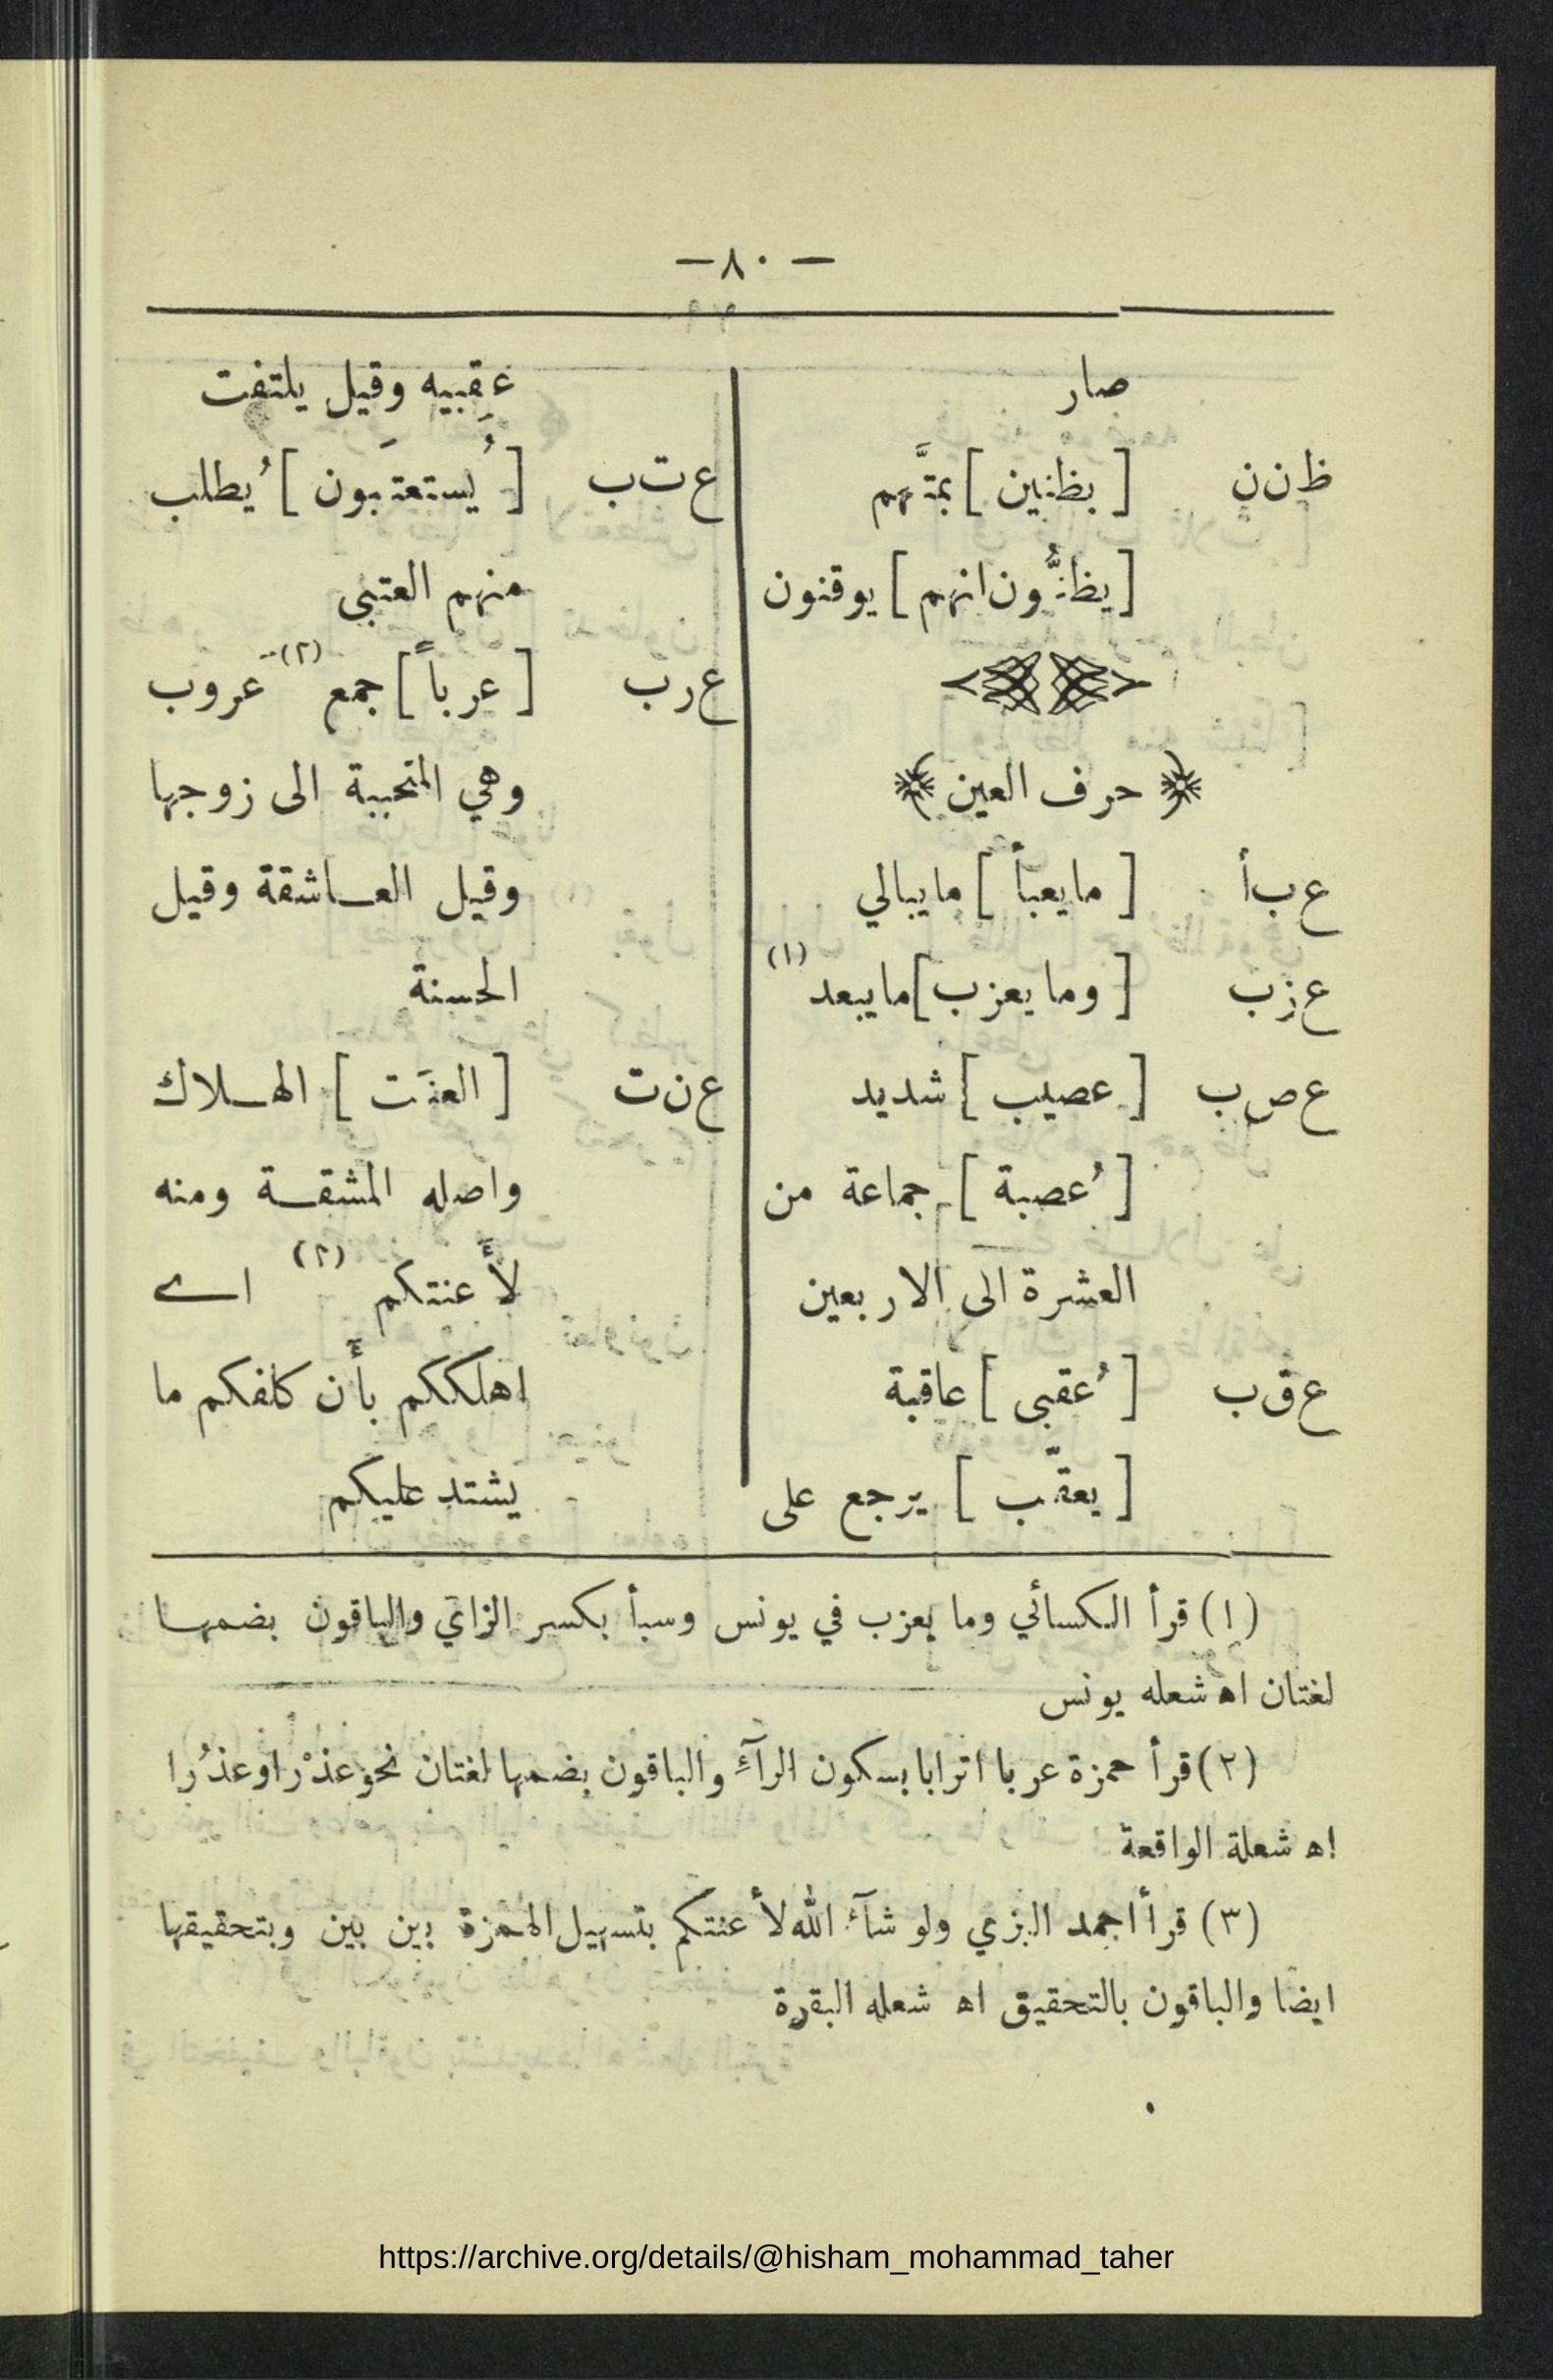 — ٨٠ —
صار
ظ ن ن [ بظنين ] بمتَّهم
[ يظنُّون انهم ] يوقنون
﴿ حرف العين ﴾
ع ب أ [ ما يعبأ ] ما يبالي
ع ز ب [ وما يعزب ] ما يبعد (١)
ع ص ب [ عصيب ] شديد
[ عُصبة ] جماعة من
العشرة الى الاربعين
ع ق ب [ عُقبى ] عاقبة
[ يعقّب ] يرجع على
عقِبيه وقيل يلتفت
ع ت ب [ يُستعتَبون ] يُطلب
منهم العتبى
ع ر ب [ عرباً ] جمع (٢) عروب
وهي المتحببة الى زوجها
وقيل العاشقة وقيل
الحسنة
ع ن ت [ العنَت ] الهلاك
واصله المشقة ومنه
لأَعنتكم (٢) اي
اهلككم بأَن كلفكم ما
يشتد عليكم
(١) قرأ الكسائي وما يعزب في يونس وسبأ بكسر الزاي والباقون بضمها
لغتان اه شعله يونس
(٢) قرأ حمزة عربا اترابا بسكون الرآءِ والباقون بضمها لغتان نحو عذْرا وعذُرا
اه شعلة الواقعة
(٣) قرأ احمد البزي ولو شآءَ الله لأعنتكم بتسهيل الهمزة بين بين وبتحقيقها
ايضا والباقون بالتحقيق اه شعله البقرة
https://archive.org/details/@hisham_mohammad_taher